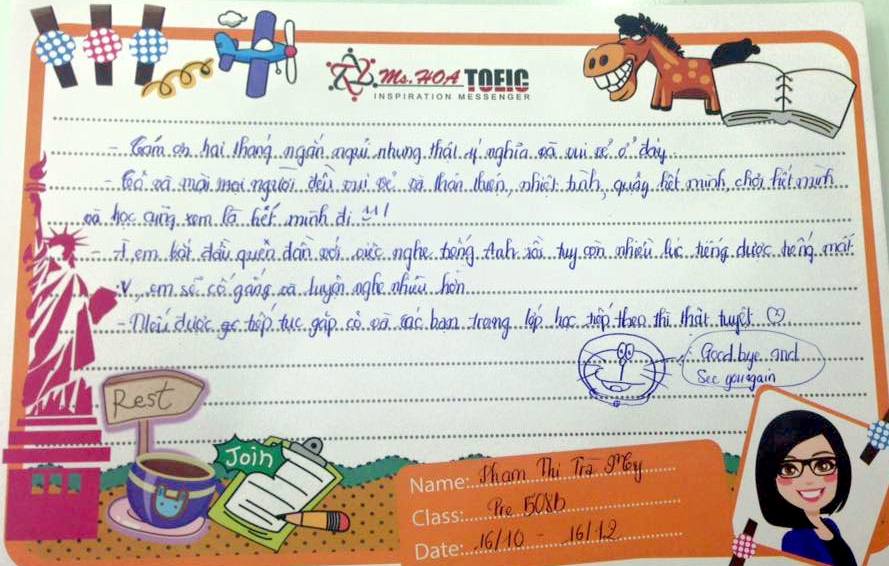 Ms. HOA TOEIC
INSPIRATION MESSENGER
- Cám ơn hai tháng ngắn ngủi nhưng thật ý nghĩa và vui vẻ ở đây.
- Cô và mọi người đều vui vẻ và thân thiện, nhiệt tình, quẩy hết mình, chơi hết mình
và học cũng xem là hết mình đi ^^!
- em bắt đầu quen dần với việc nghe tiếng Anh rồi tuy còn nhiều lúc tiếng được tiếng mất
:v, em sẽ cố gắng và luyện nghe nhiều hơn
- Nếu được tiếp tục gặp cô và các bạn trong lớp học tiếp theo thì thật tuyệt
Good bye and
See you again
Rest
Join
Name: Phạm Thị Trà My
Class: Pre 508b
Date: 16/10 - 16/12